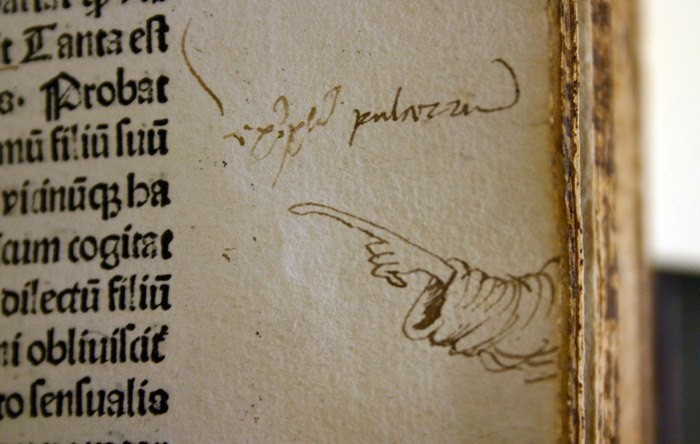 t Tanta est
s. Probat
mū filiū suū
viciniūqȝ ha
cum cogitat
dilectū filiū
ni obliuiscit
to sensualis
pulcerru